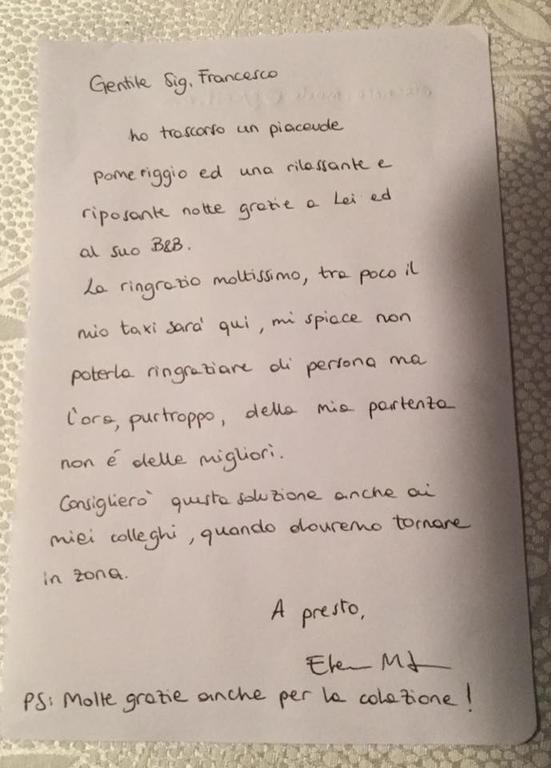 Gentile Sig. Francesco
ho trascorso un piacevole
pomeriggio ed una rilassante e
riposante notte grazie a Lei ed
al suo B&B.
La ringrazio moltissimo, tra poco il
mio taxi sara' qui, mi spiace non
poterla ringraziare di persona ma
l'ora, purtroppo, della mia partenza
non é delle migliori.
Consiglierò questa soluzione anche ai
miei colleghi, quando dovremo tornare
in zona.
A presto,
PS: Molte grazie anche per la colazione!